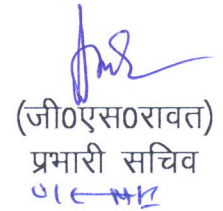 (जी0एस0रावत)
प्रभारी सचिव